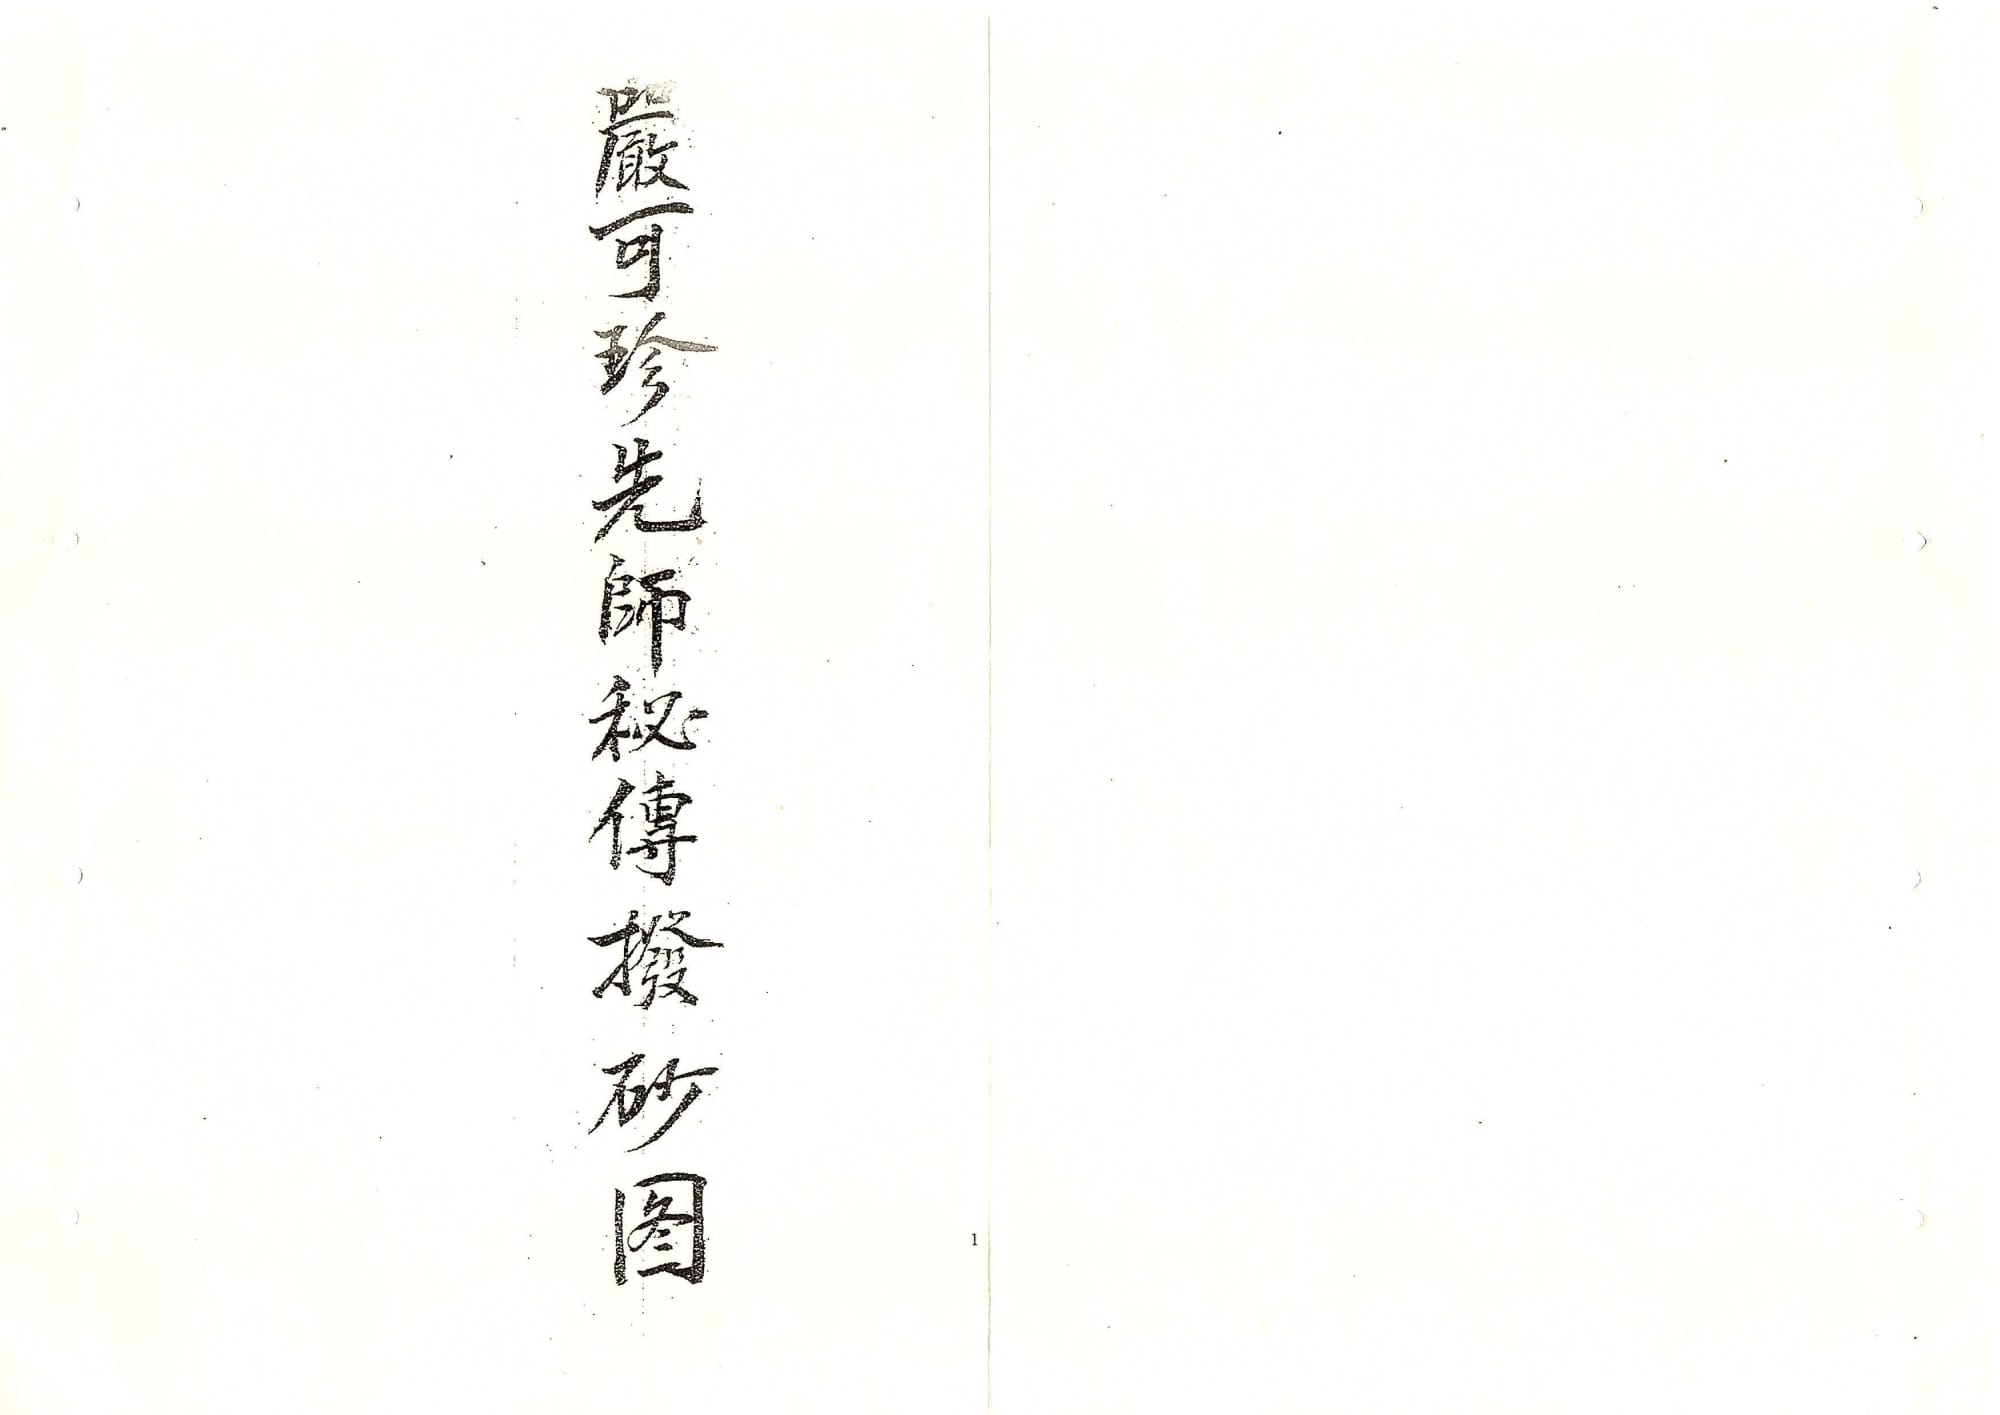 嚴可珍先師秘傳撥砂图
1